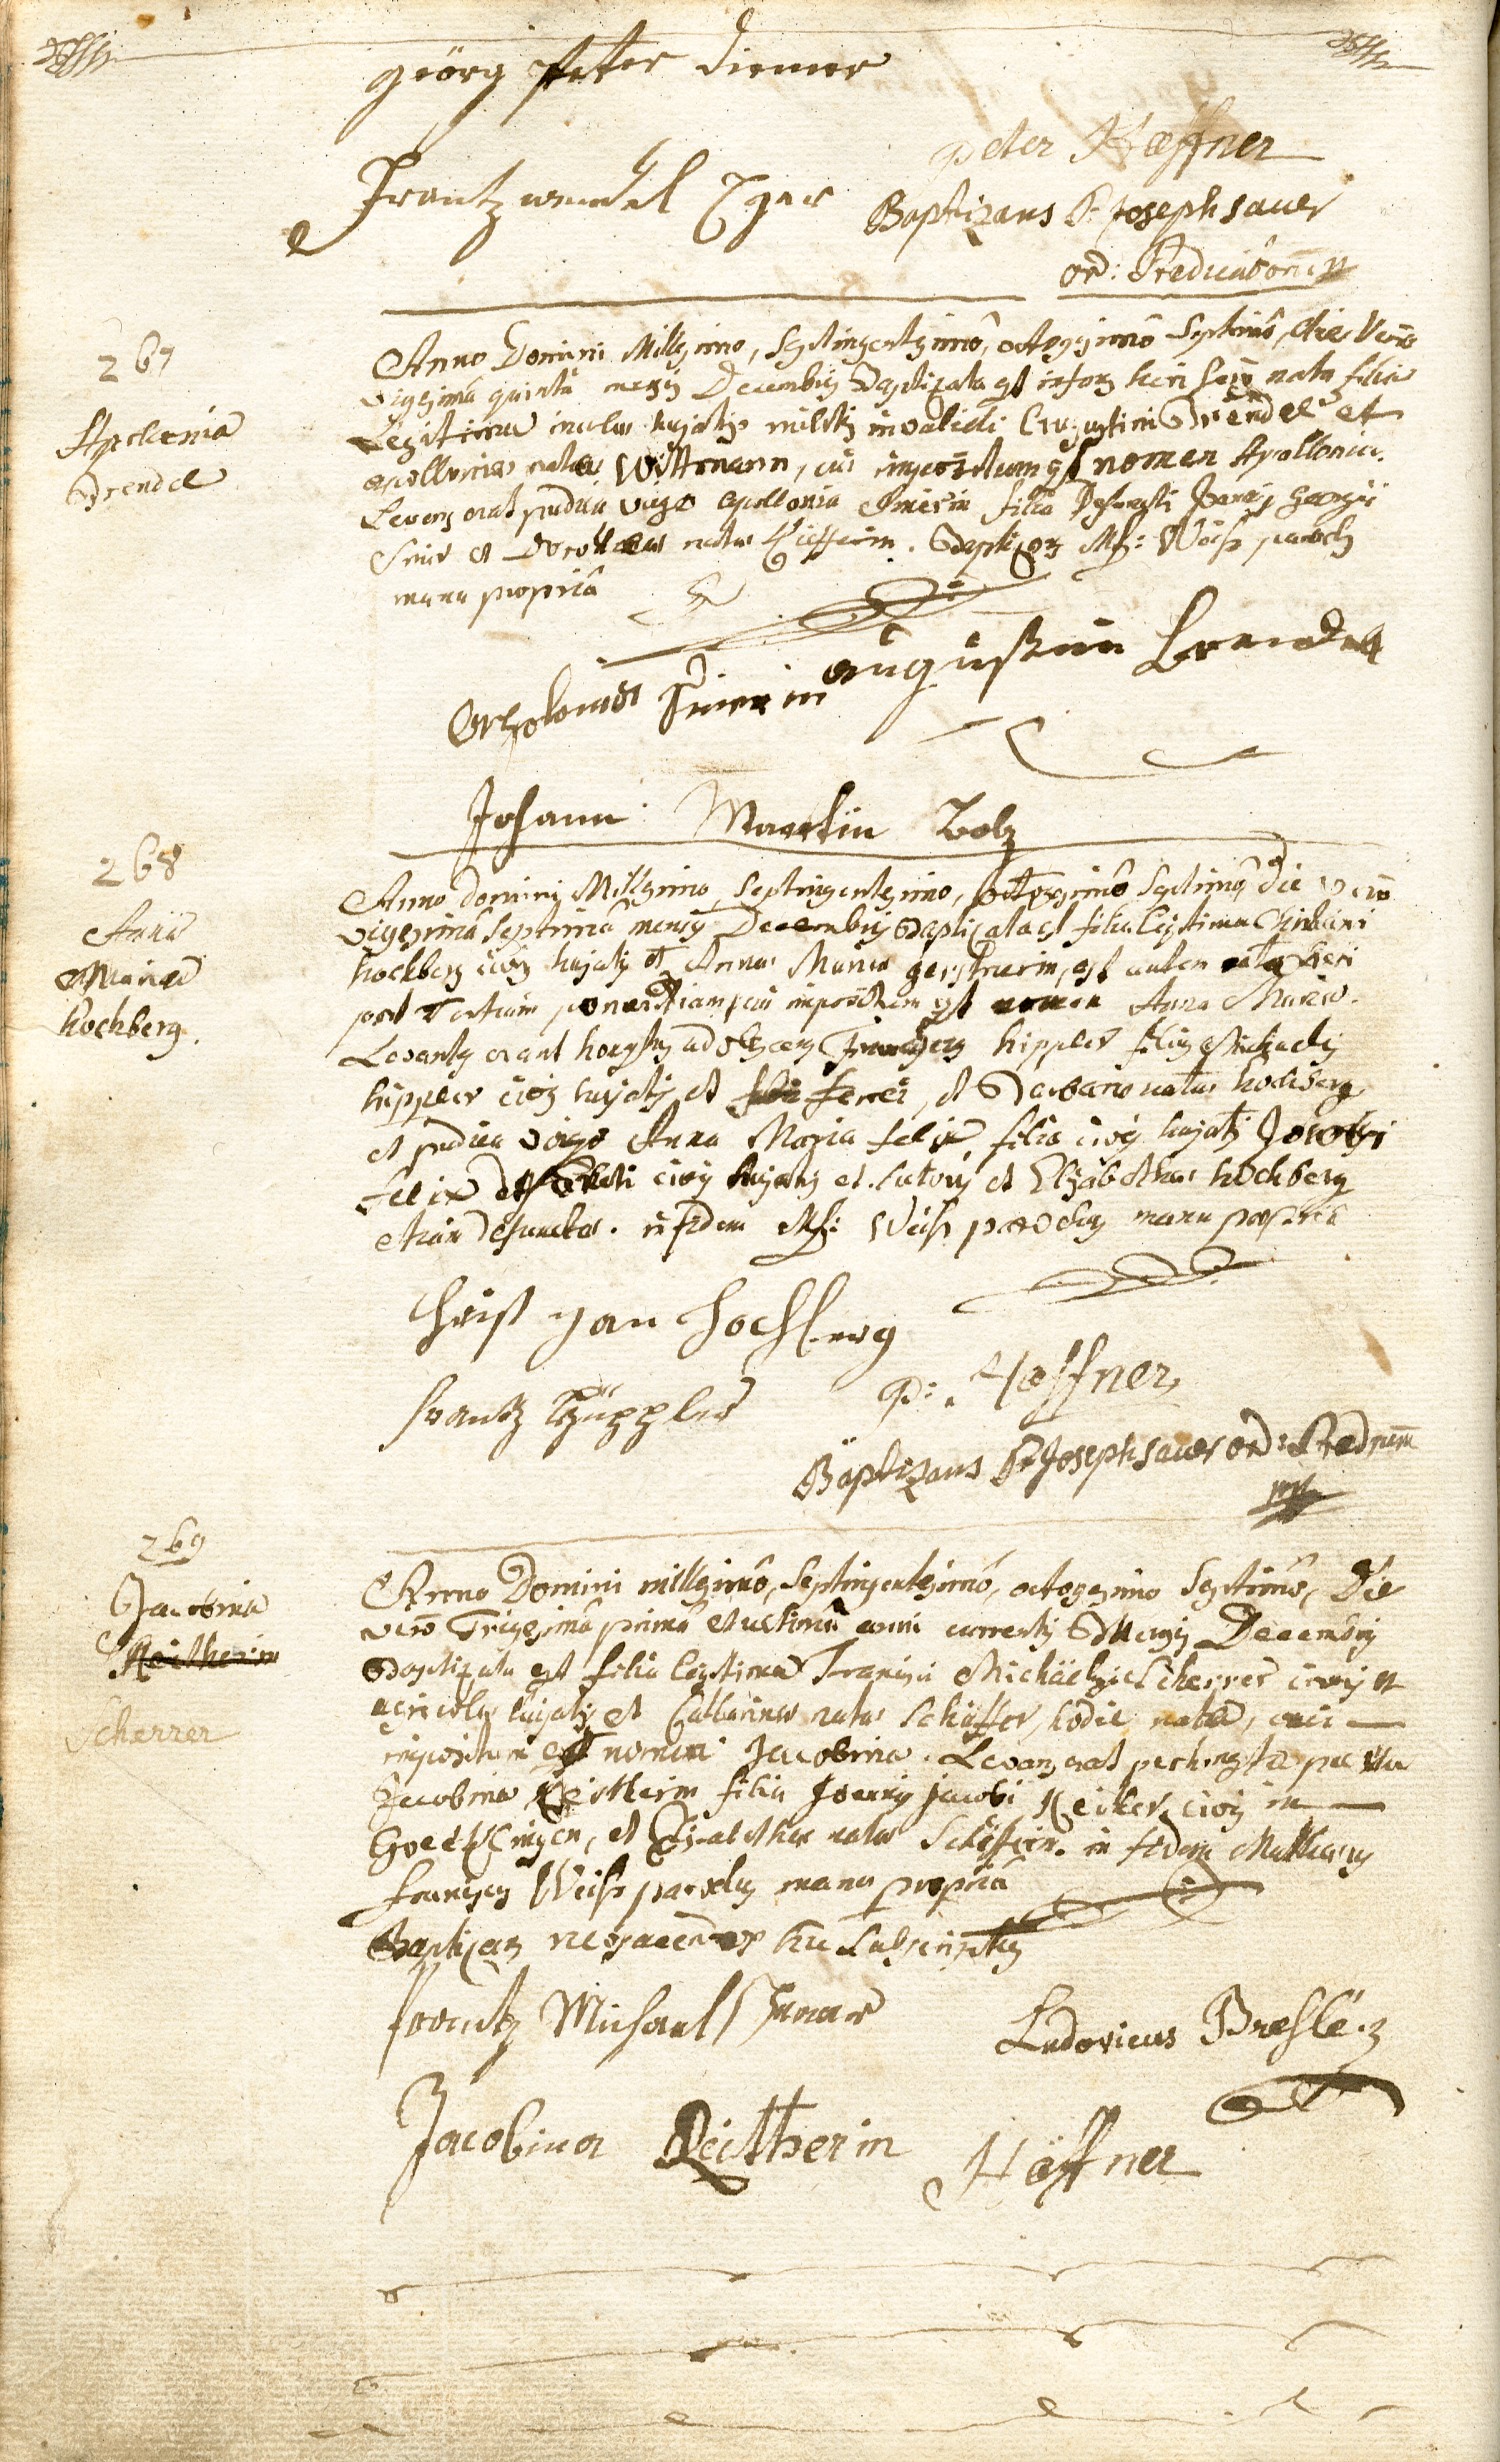 geörg Peter diemer
Peter Haffner
Frantz wendel Eger
Baptizans P. Joseph sauer
ord: Predicatorum
267
Apolonia
Brendel
Anno Domini Millesimo, Septingentesimo, octogesimo Septimo, die Vero
vigesima quinta mensis Decembris Baptizata est infans heri Sero nata filia
Legitima incolae hujatis militis invalidi Augustini Brendel et
apolloniae natae Wittmann, cui impositum est nomen Apollonia.
Levans erat pudica virgo apollonia filia Defuncti Joannis Georgii
et Dorotheae natae . Baptizans Ms: Weiss parochus
manu propria
augustin Brendel
Johann Martin Bolz
268
Anna
Maria
Hochberg.
Anno domini Millesimo, Septingentesimo, octogesimo Septimo die vero
vigesima Septima mensis Decembris Baptizata est filia legitima Christiani
hochberg civis hujatis et Annae Mariae gerstnerin, est autem nata heri
post Tertiam pomeridiam, cui impositum est nomen Anna Maria.
Levantes erant honestus adolescens Franciscus hippler filius Michaelis
hippler civis hujatis et ferrei, et Barbarae natae hochberg
et pudica virgo Anna Maria felix, filia civis hujatis Jacobi
felix defuncti civis hujatis et Sutoris et Elisabethae hochberg
etiam defunctae. in fidem Ms: Weiss parochus manu propria
Christ jan hochberg
P: Haffner
frantz hüppler
Baptizans P. Joseph sauer ord: Predicum
mp
269
Jacobina
Reitherin
Scherrer
Anno Domini millesimo, Septingentesimo, octogesimo Septimo, Die
vero Trigesima prima et ultima anni currentis Mensis Decembris
Baptizata est filia legitima Francisci Michaelis Scherrer civis et
agricolae hujatis et Catharinae natae Schäffer, hodie nata, cui
impositum est nomen Jacobina. Levans erat perhonesta puella
Jacobina Reitherin filia Joannis jacobi Reither, civis in
et Elisabethae natae Schäfferin. in fidem Mathaeus
franciscus Weiss parochus manu propria
Baptizans hic Subscriptus
frantz Michael
Ludovicus
Jacobina Reitherin
Häffner